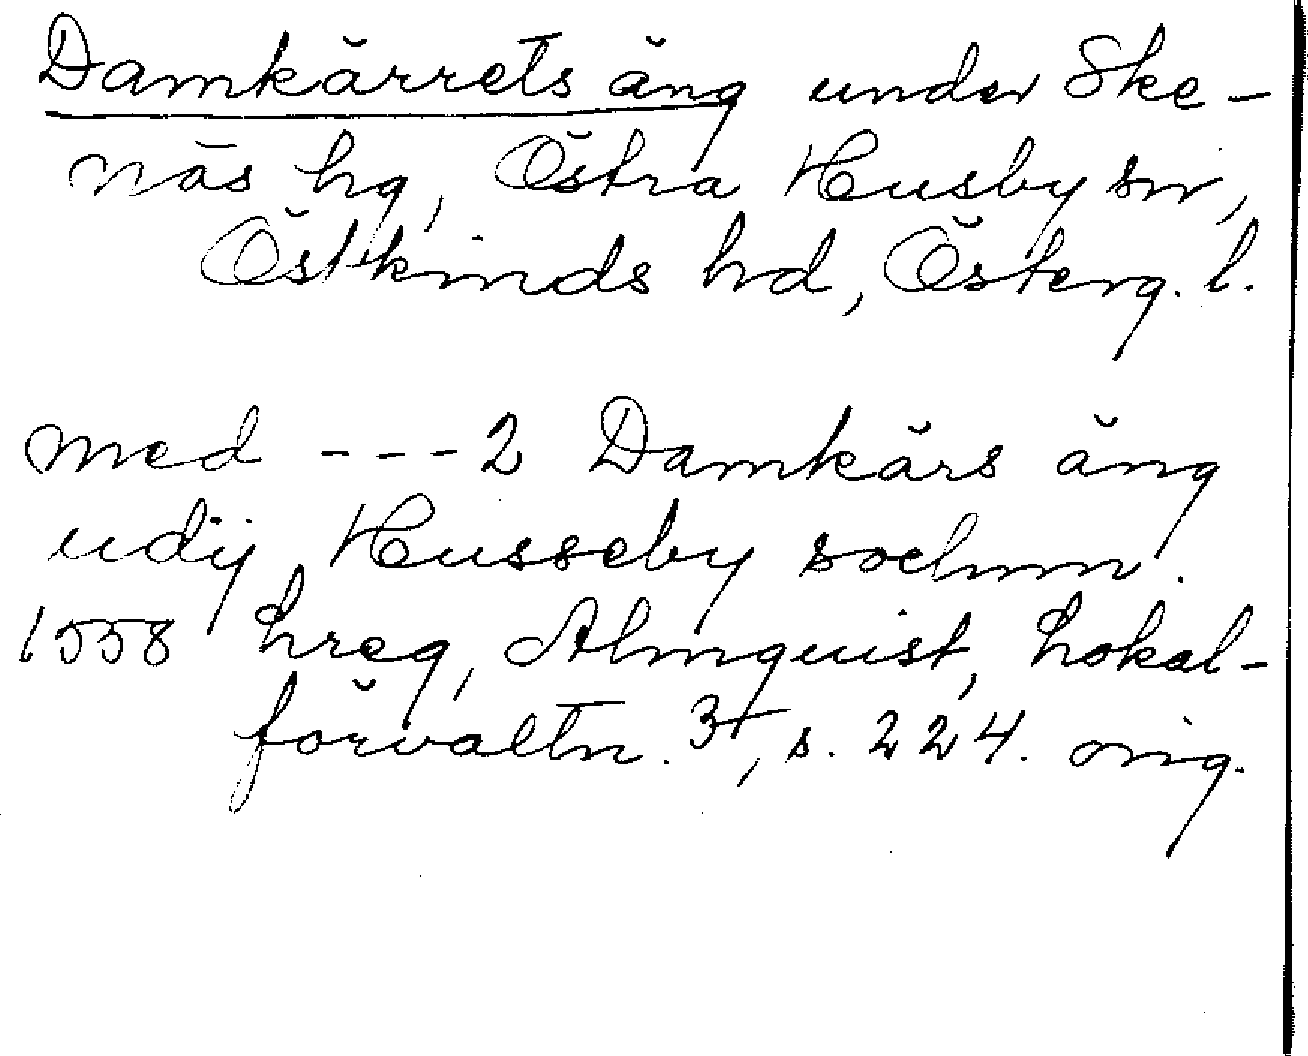 Damkärrets äng under Ske-
näs hg, Östra Husby sn,
Östkinds hd, Österg. l.
med - - - 2 Damkärs äng
udij Husseby sochnn.
1558 hreg, Almquist, Lokal-
förvaltn. 3, s. 224. orig.